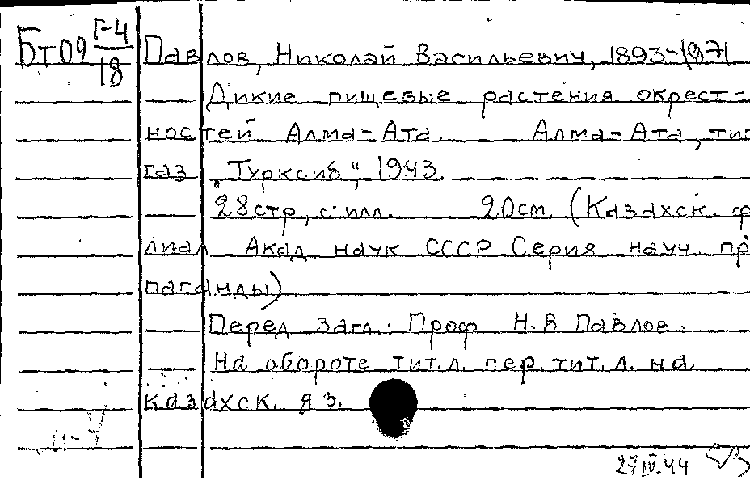 Бт09 Г-4/18
Павлов, Николай Васильевич, 1893-1971
Дикие пищевые растения окрест-
ностей Алма-Ата. Алма-Ата, тип
газ „Турксиб", 1943.
28стр, с илл. 20см. (Казахск. ф
лиал Акад наук СССР Серия науч. пр
паганды)
Перед загл.: Проф Н.В Павлов.
На обороте тит.л. пер. тит. л. на
казахск. яз.
27 IV.44